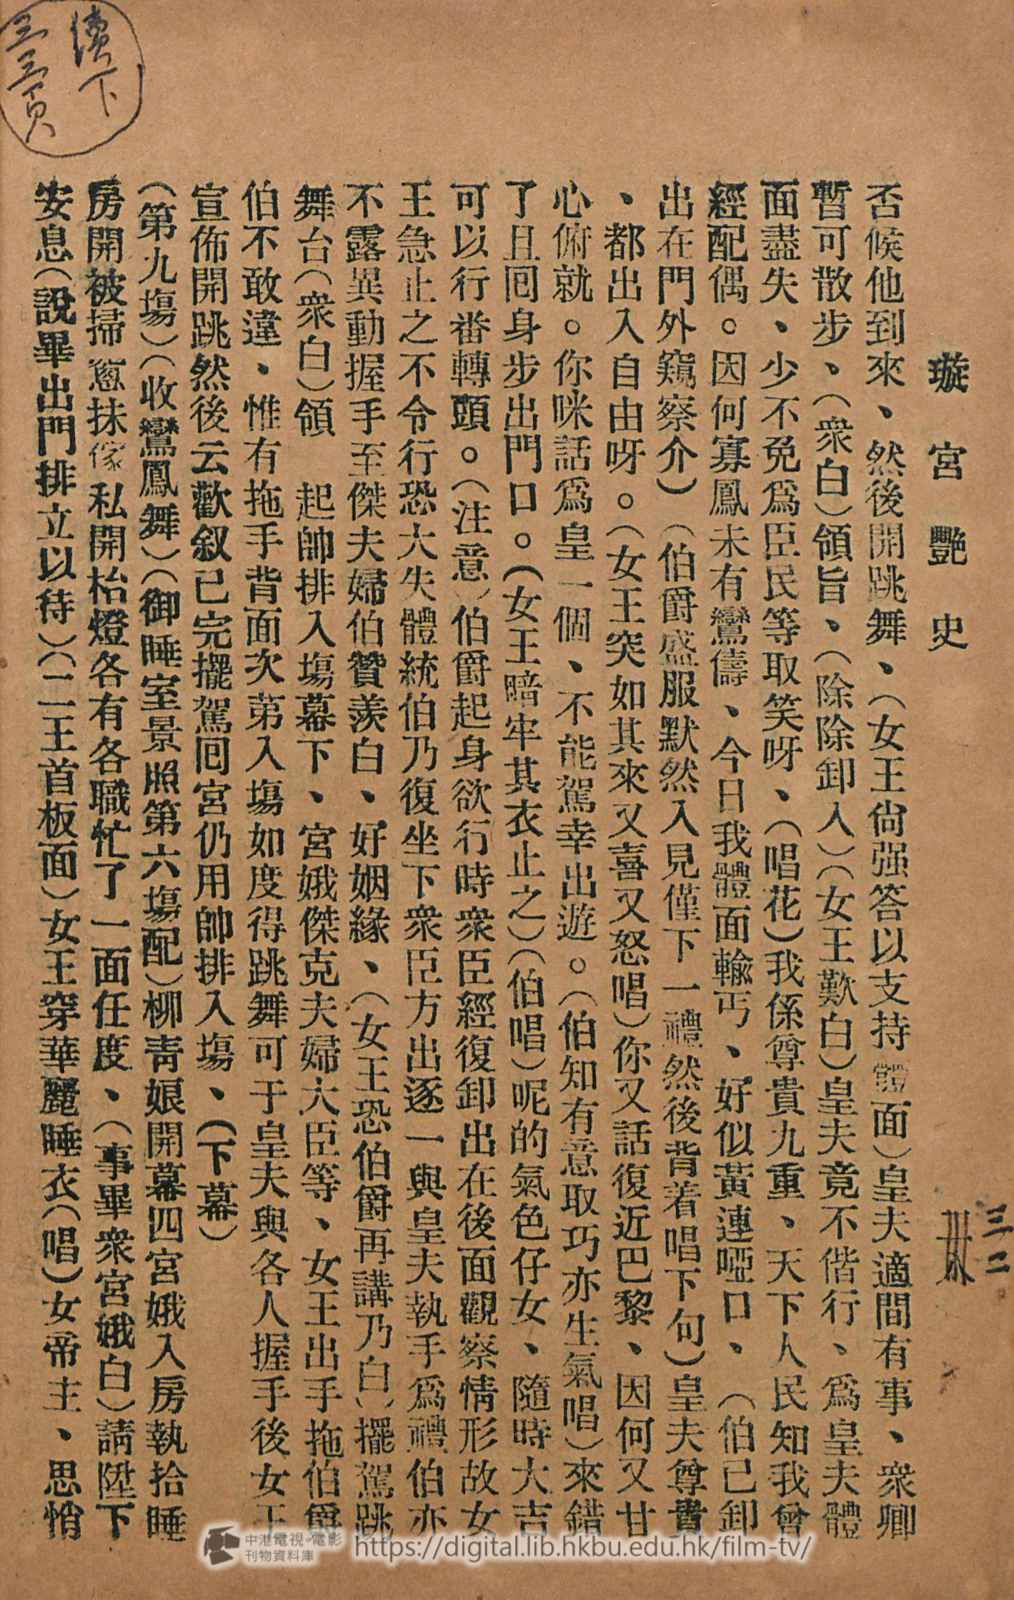 璇宮艷史
三二
否候他到來、然後開跳舞、（女王尙强答以支持體面）皇夫適間有事、衆卿
暫可散步、（衆白）領旨、（除除卸入）（女王歎白）皇夫竟不偕行、爲皇夫體
面盡失、少不免爲臣民等取笑呀、（唱花）我係尊貴九重、天下人民知我曾
經配偶。因何寡鳳未有鸞儔、今日我體面輸丐、好似黃連啞口、（伯已卸
出在門外窺察介）（伯爵盛服默然入見僅下一禮然後背着唱下句）皇夫尊貴
、都出入自由呀。（女王突如其來又喜又怒唱）你又話復近巴黎、因何又甘
心俯就。你咪話爲皇一個、不能駕幸出遊。（伯知有意取巧亦生氣唱）來錯
了且囘身步出門口。（女王暗牢其衣止之）（伯唱）呢的氣色仔女、隨時大吉
可以行番轉頭。（注意）伯爵起身欲行時衆臣經復卸出在後面觀察情形故女
王急止之不令行恐大失體統伯乃復坐下衆臣方出逐一與皇夫執手爲禮伯亦
不露異動握手至傑夫婦伯贊羨白、好姻緣、（女王恐伯爵再講乃白）擺駕跳
舞台（衆白）領　起帥排入塲幕下、宮娥傑克夫婦大臣等、女王出手拖伯爵
伯不敢違、惟有拖手背面次第入塲如度得跳舞可于皇夫與各人握手後女王
宣佈開跳然後云歡叙已完擺駕囘宮仍用帥排入塲、（下幕）
（第九塲）（收鸞鳳舞）（御睡室景照第六塲配）柳青娘開幕四宮娥入房執拾睡
房開被掃窻抹傢私開枱燈各有各職忙了一面任度、（事畢衆宮娥白）請陞下
安息（說畢出門排立以待）（二王首板面）女王穿華麗睡衣（唱）女帝主、思悄
續下
三三頁
中港電視・電影
刊物資料庫
https://digital.lib.hkbu.edu.hk/film-tv/